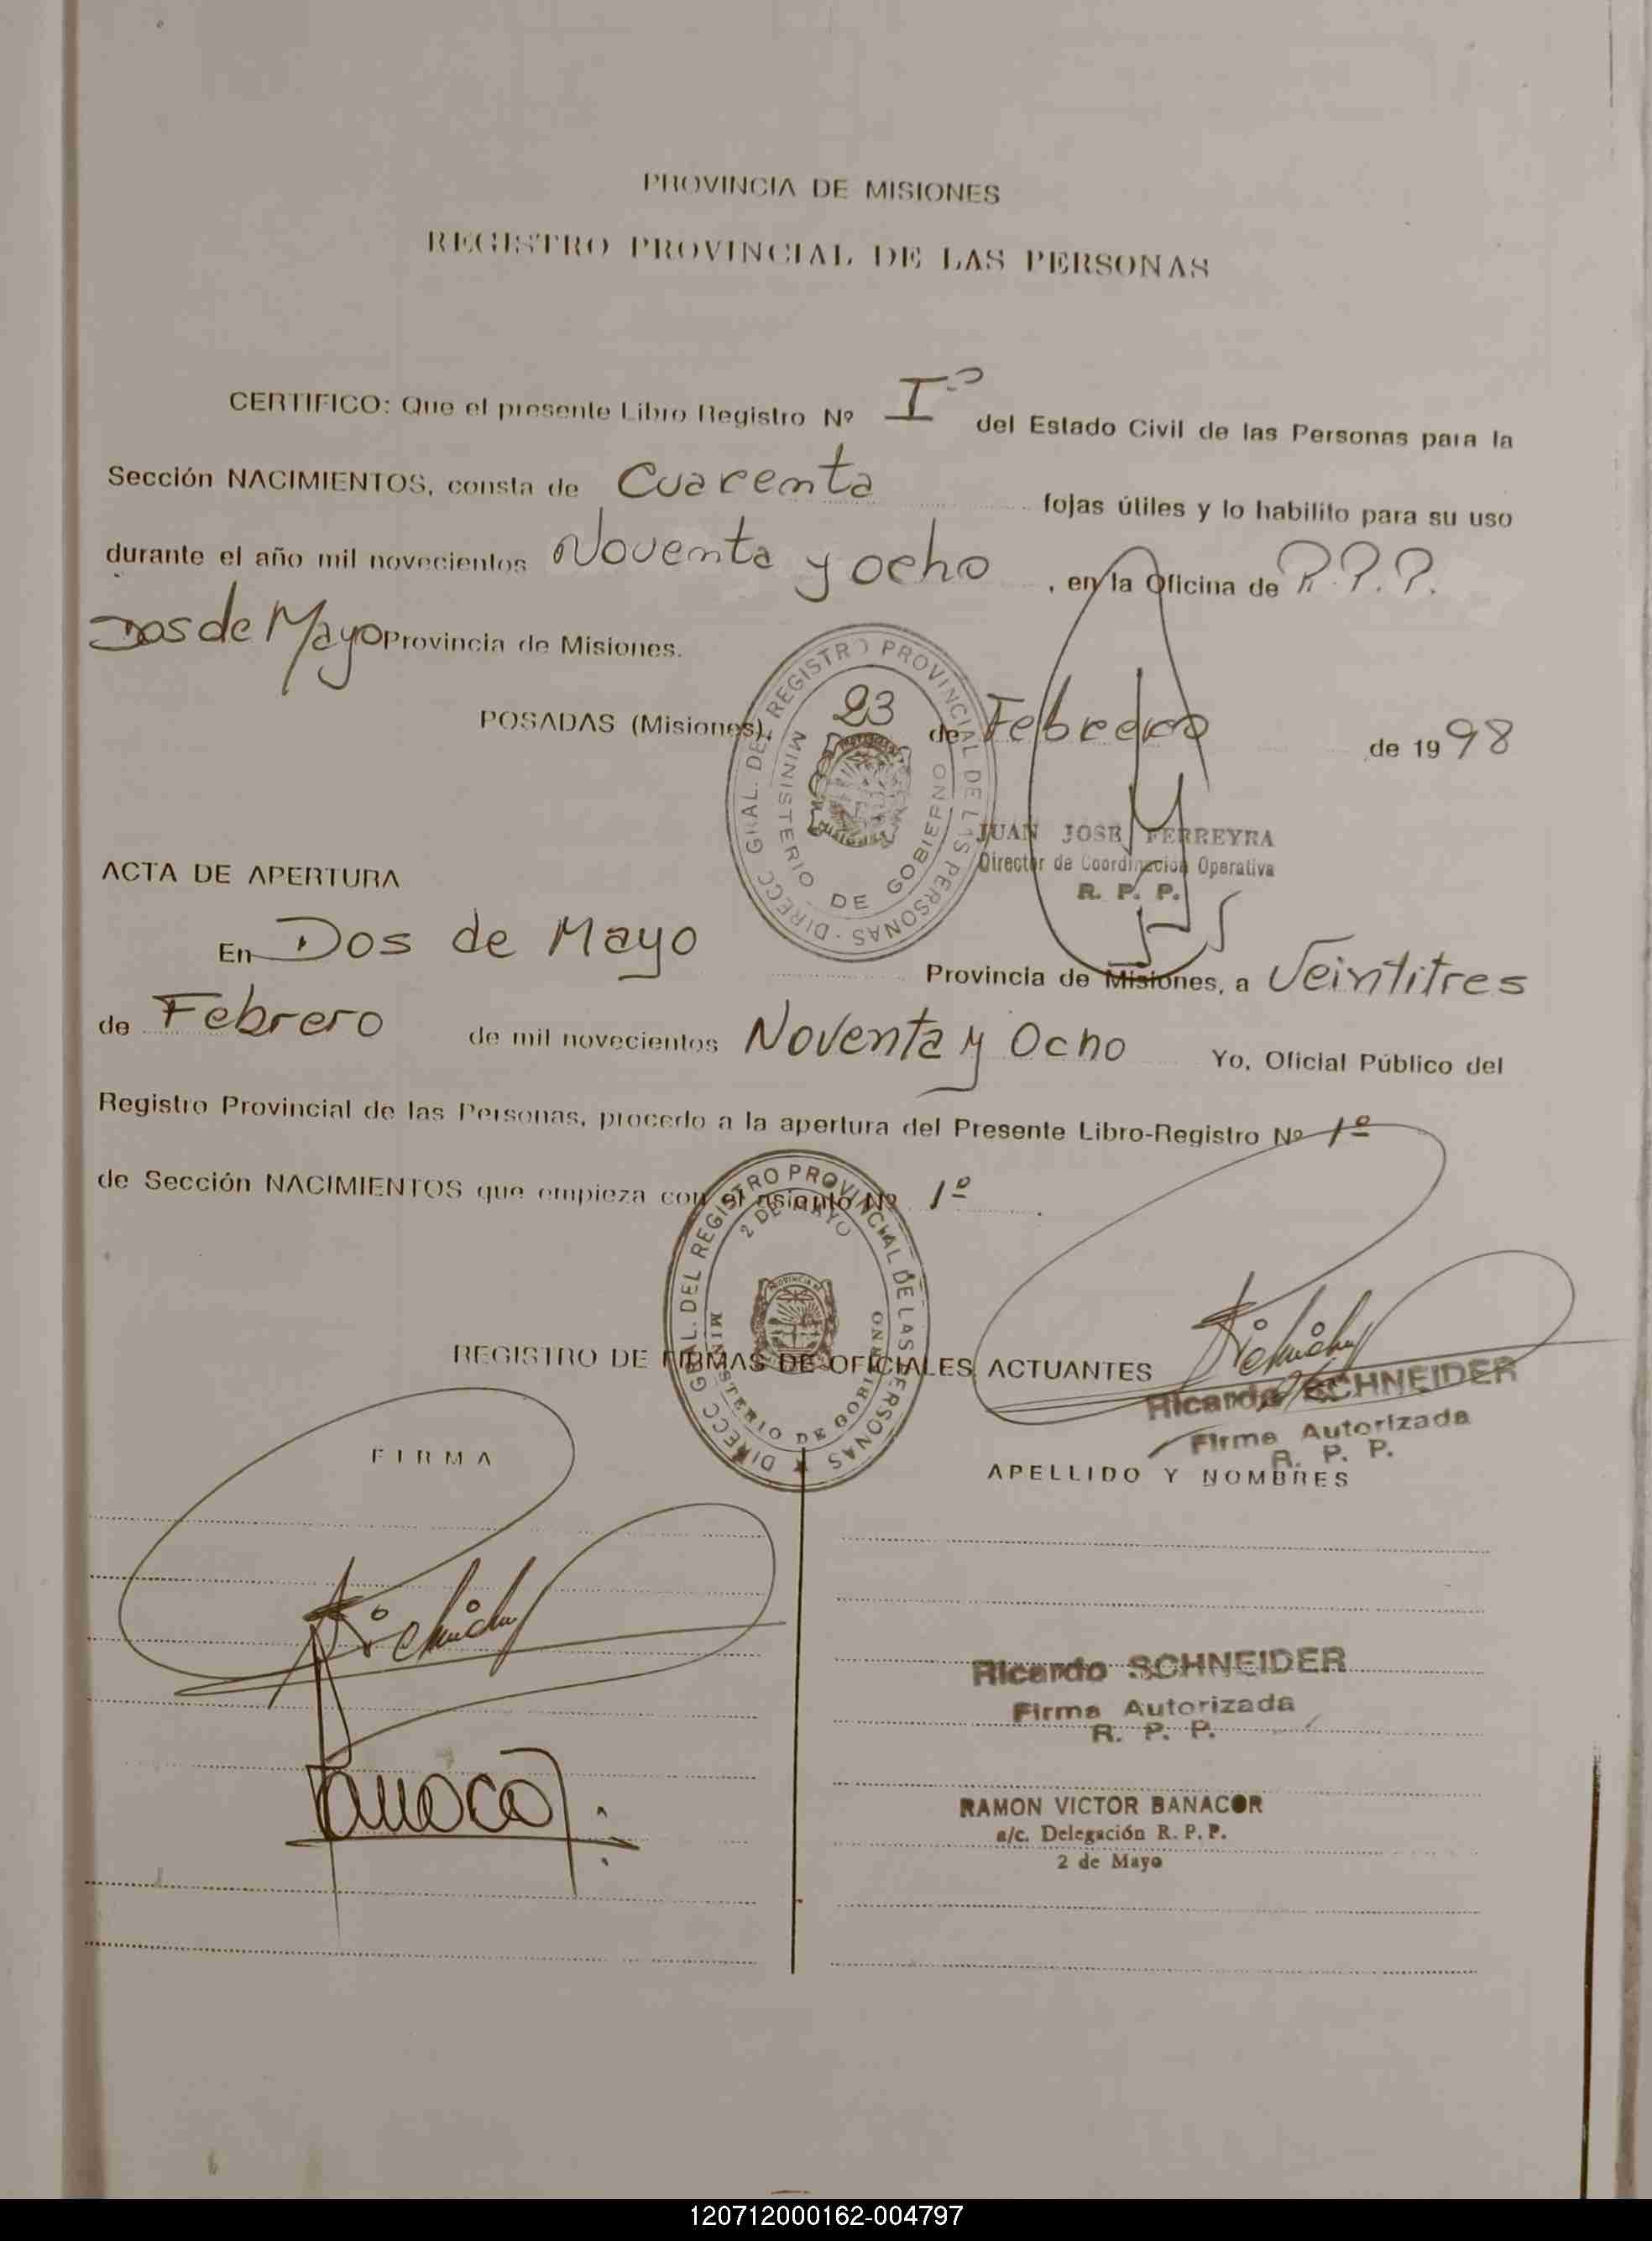 PROVINCIA DE MISIONES
REGISTRO PROVINCIAL DE LAS PERSONAS
CERTIFICO: Que el presente Libro Registro Nº I° del Estado Civil de las Personas para la
Sección NACIMIENTOS, consta de Cuarenta fojas útiles y lo habilito para su uso
durante el año mil novecientos Noventa y ocho, en la Oficina de R.P.P.
Dos de Mayo Provincia de Misiones.
POSADAS (Misiones), 23 de Febrero de 1998
DIRECC GRAL. DEL REGISTRO PROVINCIAL DE LAS PERSONAS
MINISTERIO DE GOBIERNO
JUAN JOSE FERREYRA
Director de Coordinación Operativa
R. P. P.
ACTA DE APERTURA
En Dos de Mayo Provincia de Misiones, a Veintitres
de Febrero de mil novecientos Noventa y Ocho Yo, Oficial Público del
Registro Provincial de las Personas, procedo a la apertura del Presente Libro-Registro Nº 1º
de Sección NACIMIENTOS que empieza con el asiento Nº 1º.
DIRECC GRAL. DEL REGISTRO PROVINCIAL DE LAS PERSONAS
2 DE MAYO
MINISTERIO DE GOBIERNO
REGISTRO DE FIRMAS DE OFICIALES ACTUANTES
Ricardo SCHNEIDER
Firma Autorizada
R. P. P.
FIRMA APELLIDO Y NOMBRES
Ricardo SCHNEIDER
Firma Autorizada
R. P. P.
RAMON VICTOR BANACOR
a/c. Delegación R. P. P.
2 de Mayo
120712000162-004797